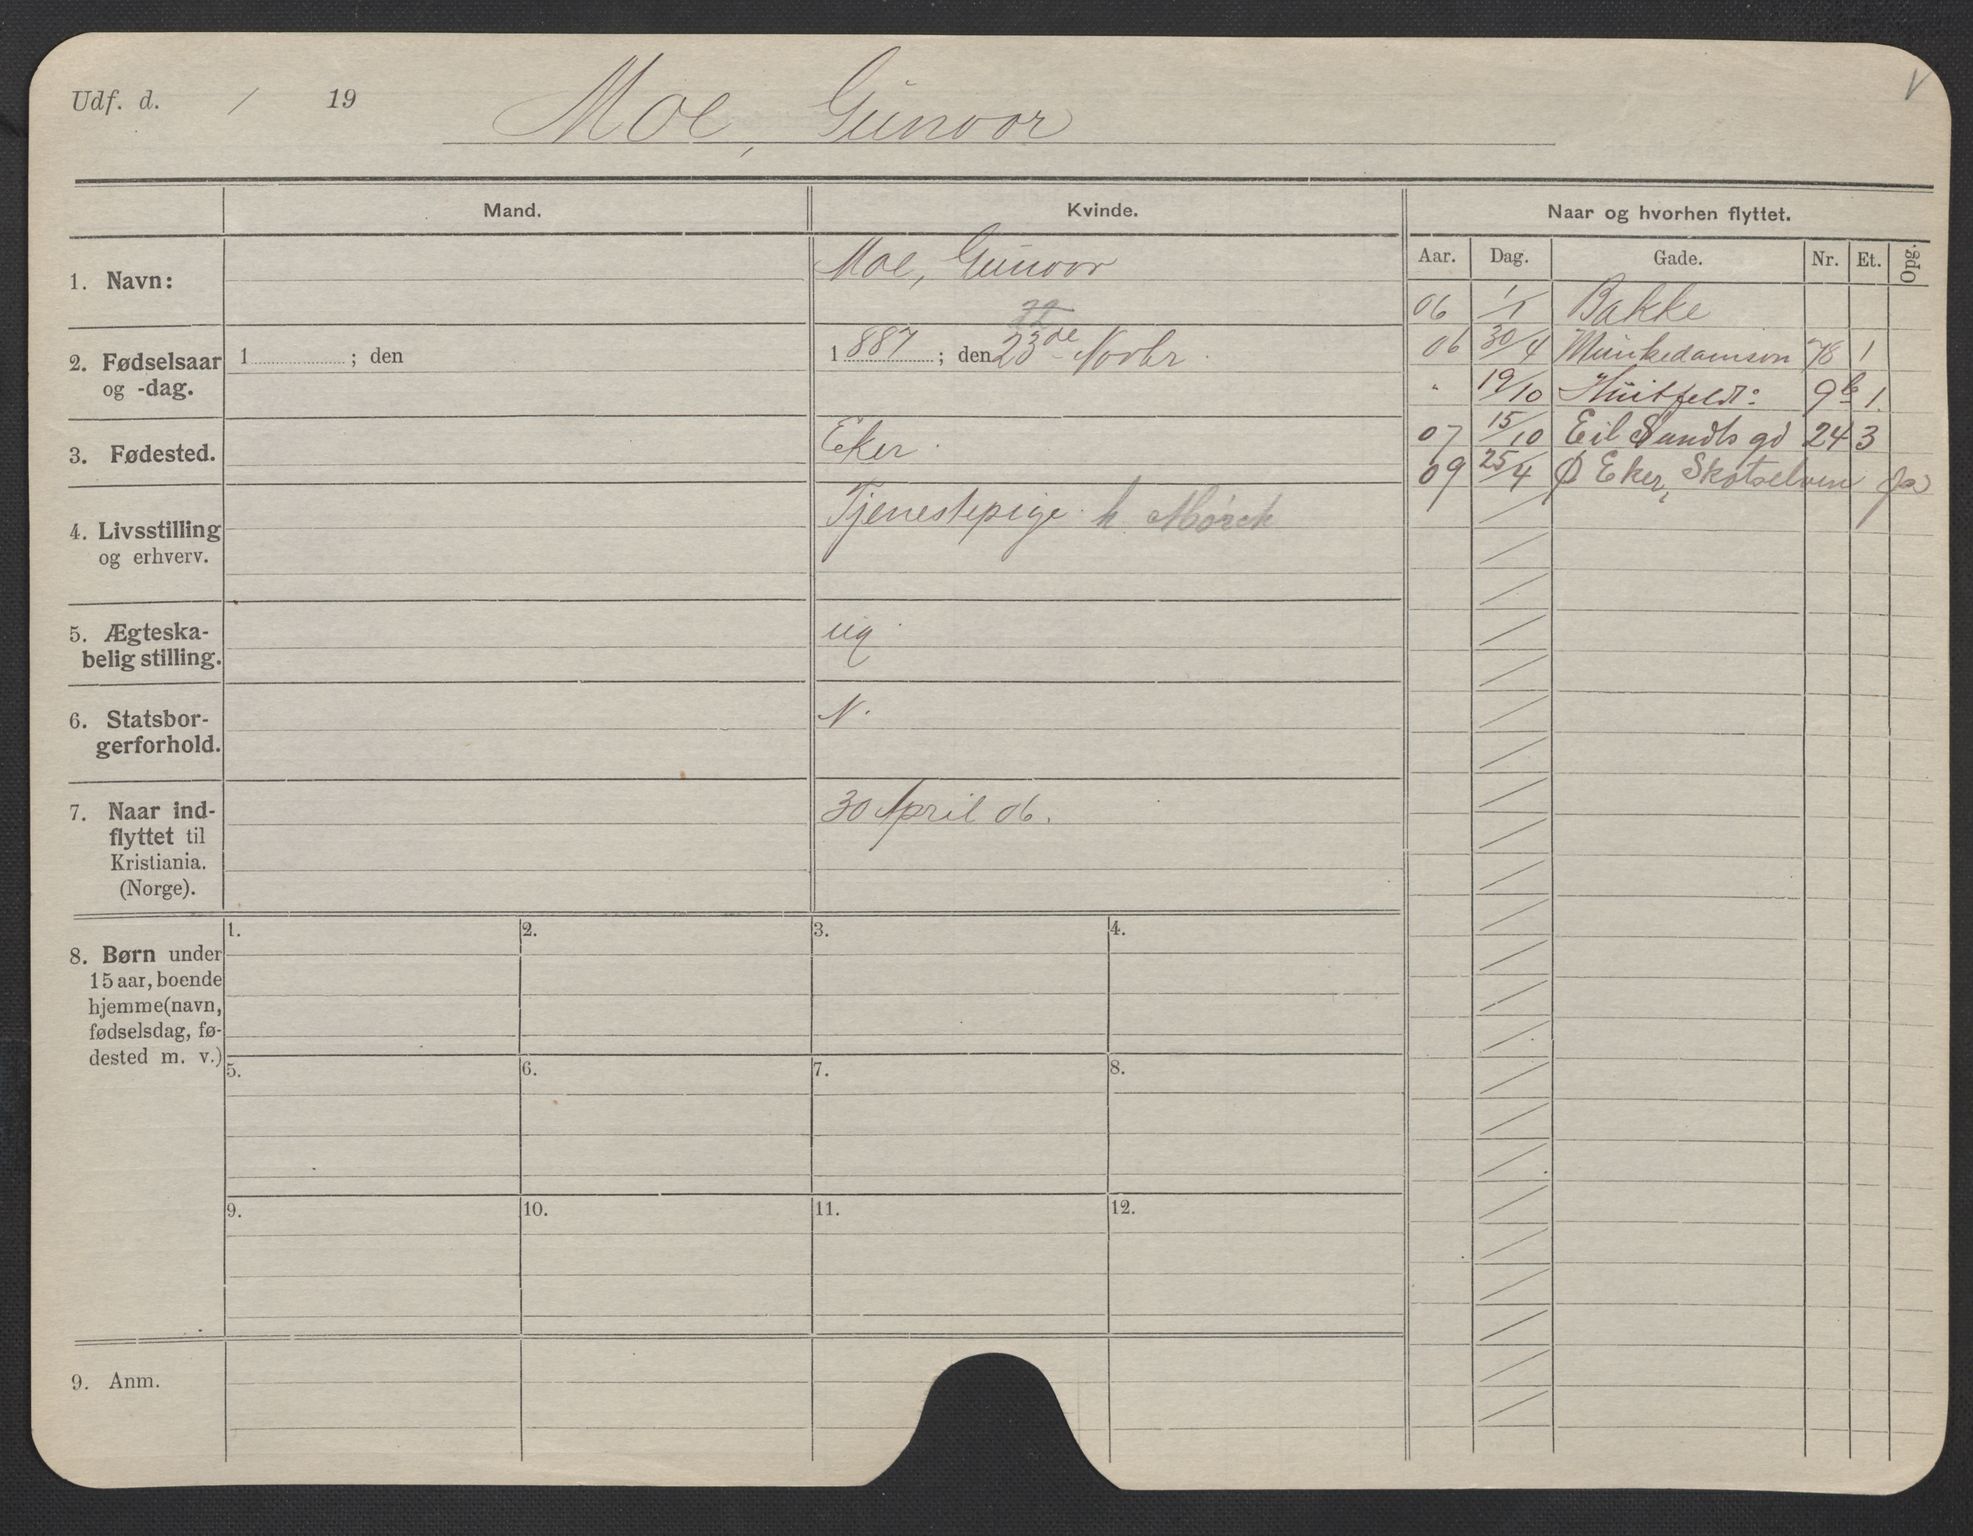 Udf. d. / 19 Moe, Gunvor
Mand. Kvinde. Naar og hvorhen flyttet.
Aar. Dag. Gade. Nr. Et. Opg.
1. Navn: Moe, Gunvor
2. Fødselsaar og -dag. 1 ; den 1887 ; den 23de Novbr.
3. Fødested. Eker.
4. Livsstilling og erhverv. Tjenestepige h. Mørch
5. Ægteska-
belig stilling. ug.
6. Statsbor-
gerforhold. N.
7. Naar ind-
flyttet til
Kristiania.
(Norge). 30 April 06.
06 1/1 Bakke
06 30/4 Munkedamsvn 78 1
" 19/10 Huitfeldt: 9b 1.
07 15/10 Eil Sundts gd 24 3
09 25/4 Ø Eker, Skotselven Ja
8. Børn under
15 aar, boende
hjemme (navn,
fødselsdag, fø-
dested m. v.)
1. 2. 3. 4.
5. 6. 7. 8.
9. 10. 11. 12.
9. Anm.